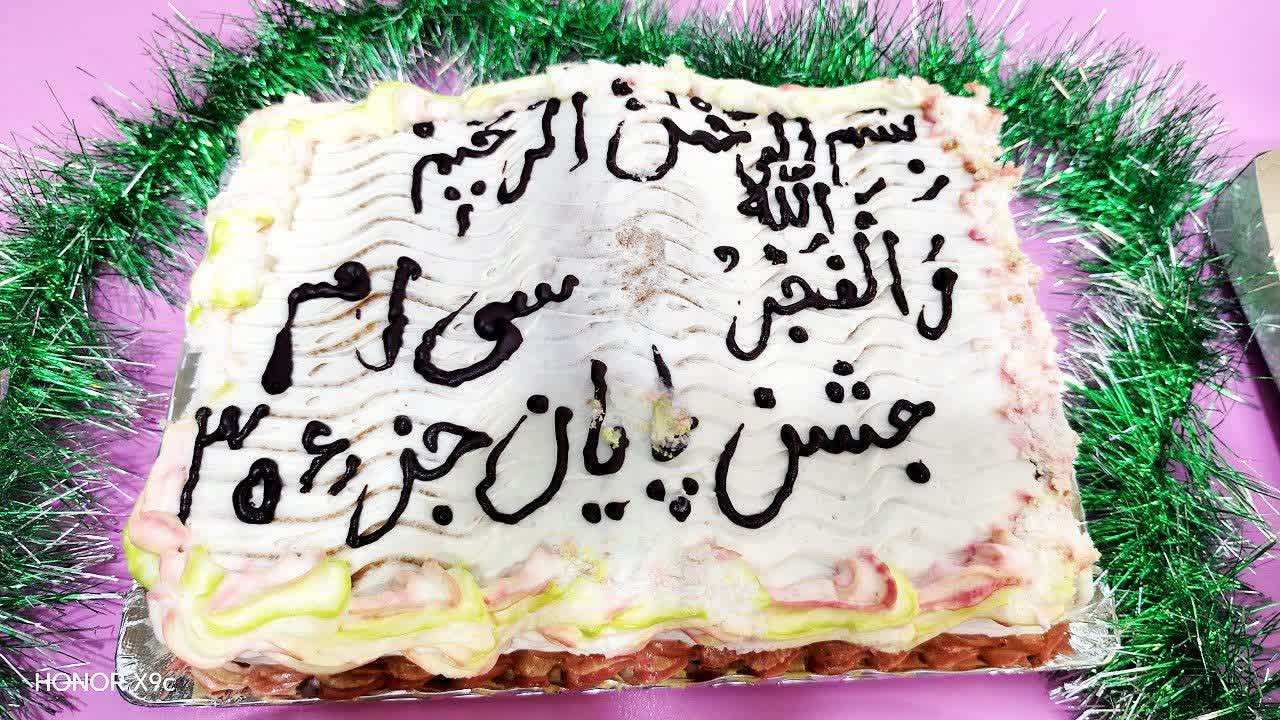 بسم الله الرحمن الرحیم
وَالْفَجْرِ
سی ام
جشن پایان جزء ۳۰
HONOR X9c